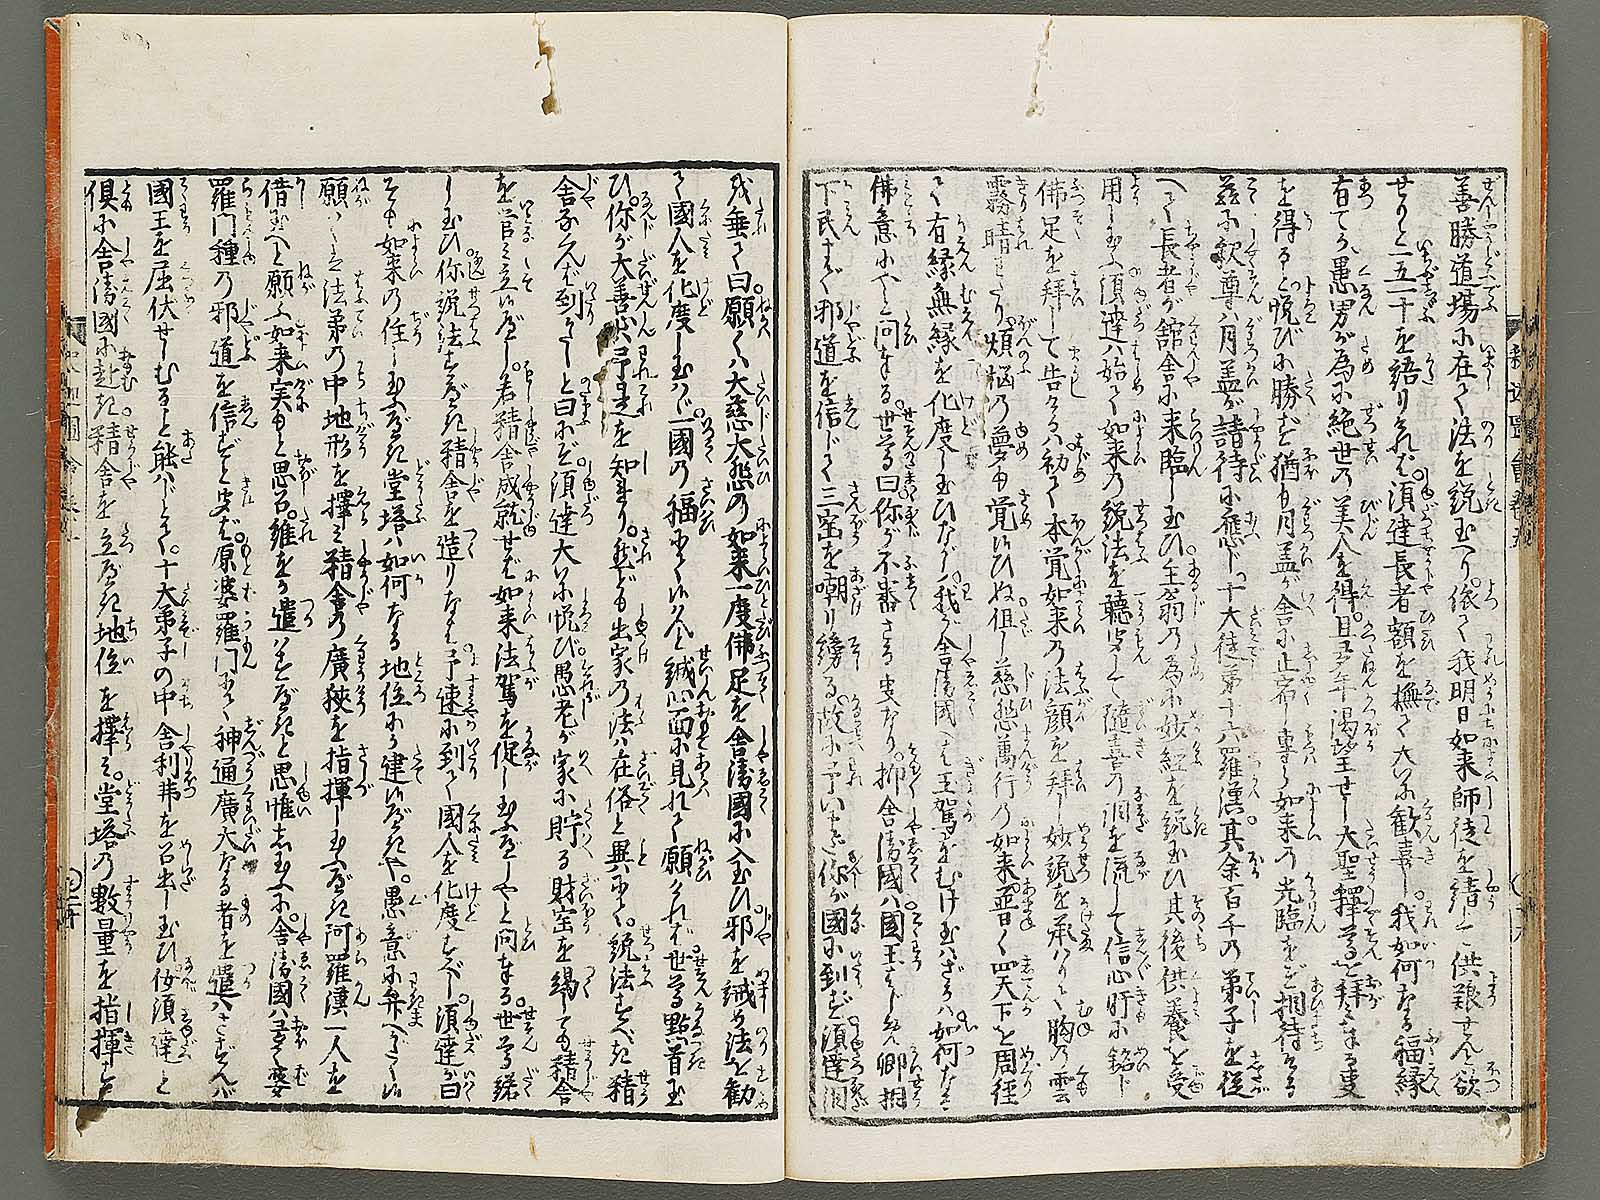 善勝道場に在て法を説玉へり。依て我明日如来師徒を請じて供養せんと欲
せりと一五一十を語りければ。須達長者額を撫て大に歓喜し。我如何なる福縁
有てか。愚男が為に絶世の美人を得。且多年渇望せし大聖釋尊を拜し奉る事
を得ると。悦びに勝ず。猶も月蓋が舎に止宿し専ら如来の光臨をぞ相待ける
茲に釈尊は月蓋が請待に應じ。十大徒弟十六羅漢。其余百千の弟子を従
へて長者が舘舎に来臨し玉ひ。主翁の為に妙經を説玉ひ其後供養を受
用し玉ふ。須達は始て如来の説法を聴受して随喜の涙を流して信心肝に銘じ
佛足を拜して告けるは。初て本覚如来の法顔を拜し。妙説を承はりて胸の雲
霧晴わたり。煩悩の夢中覚めひぬ。但し慈悲萬行の如来。普く四天下を周徑
して有縁無縁を化度し玉ひながら。我が舎衛國へは王駕をむけ玉はざるは如何なる
佛意にやと問奉る。世尊曰你が不審さる事なり。抑舎衛國は國王はじめ卿相
下民まで邪道を信じて三宝を嘲り謗る。故に予いまだ你が國に到らず。須達涙
を垂て曰。願くは大慈大悲の如来一度佛足を舎衛國に入玉ひ邪を誡め法を勧
て國人を化度し玉はゞ。一國の福ならんと。誠心面に見れて願ければ。世尊點首玉
ひ。你が大善心予是を知れり。然ども出家の法は在俗と異にて。説法すべき精
舎なくんば到りがたしと曰にぞ。須達大に悦び。愚老が家に貯る財宝を竭ても精舎
を營み立べし。若精舎成就せば如来法駕を促し玉ふべしやと問奉る。世尊諾
し玉ひ。你説法すべき精舎を造りなば予速に到て國人を化度すべし。須達が曰
そも如来の住し玉ふべき堂塔は如何なる地位に建べきや。愚意に弁へがたし
願くは法弟の中地形を擇み精舎の廣狹を指揮し玉ふべき阿羅漢一人を
借玉へと願ふ。如来実もと思召。誰をか遣はすべきと思惟し玉ふに。舎衛國は多く婆
羅門種の邪道を信ずと聞ば。原婆羅門にて神通廣大なる者を遣はさずんば
國王を屈伏せしむること能はじとて。十大弟子の中舎利弗を召出し玉ひ汝須達と
俱に舎衛國に赴き精舎を立べき地位を擇み。堂塔の數量を指揮すと